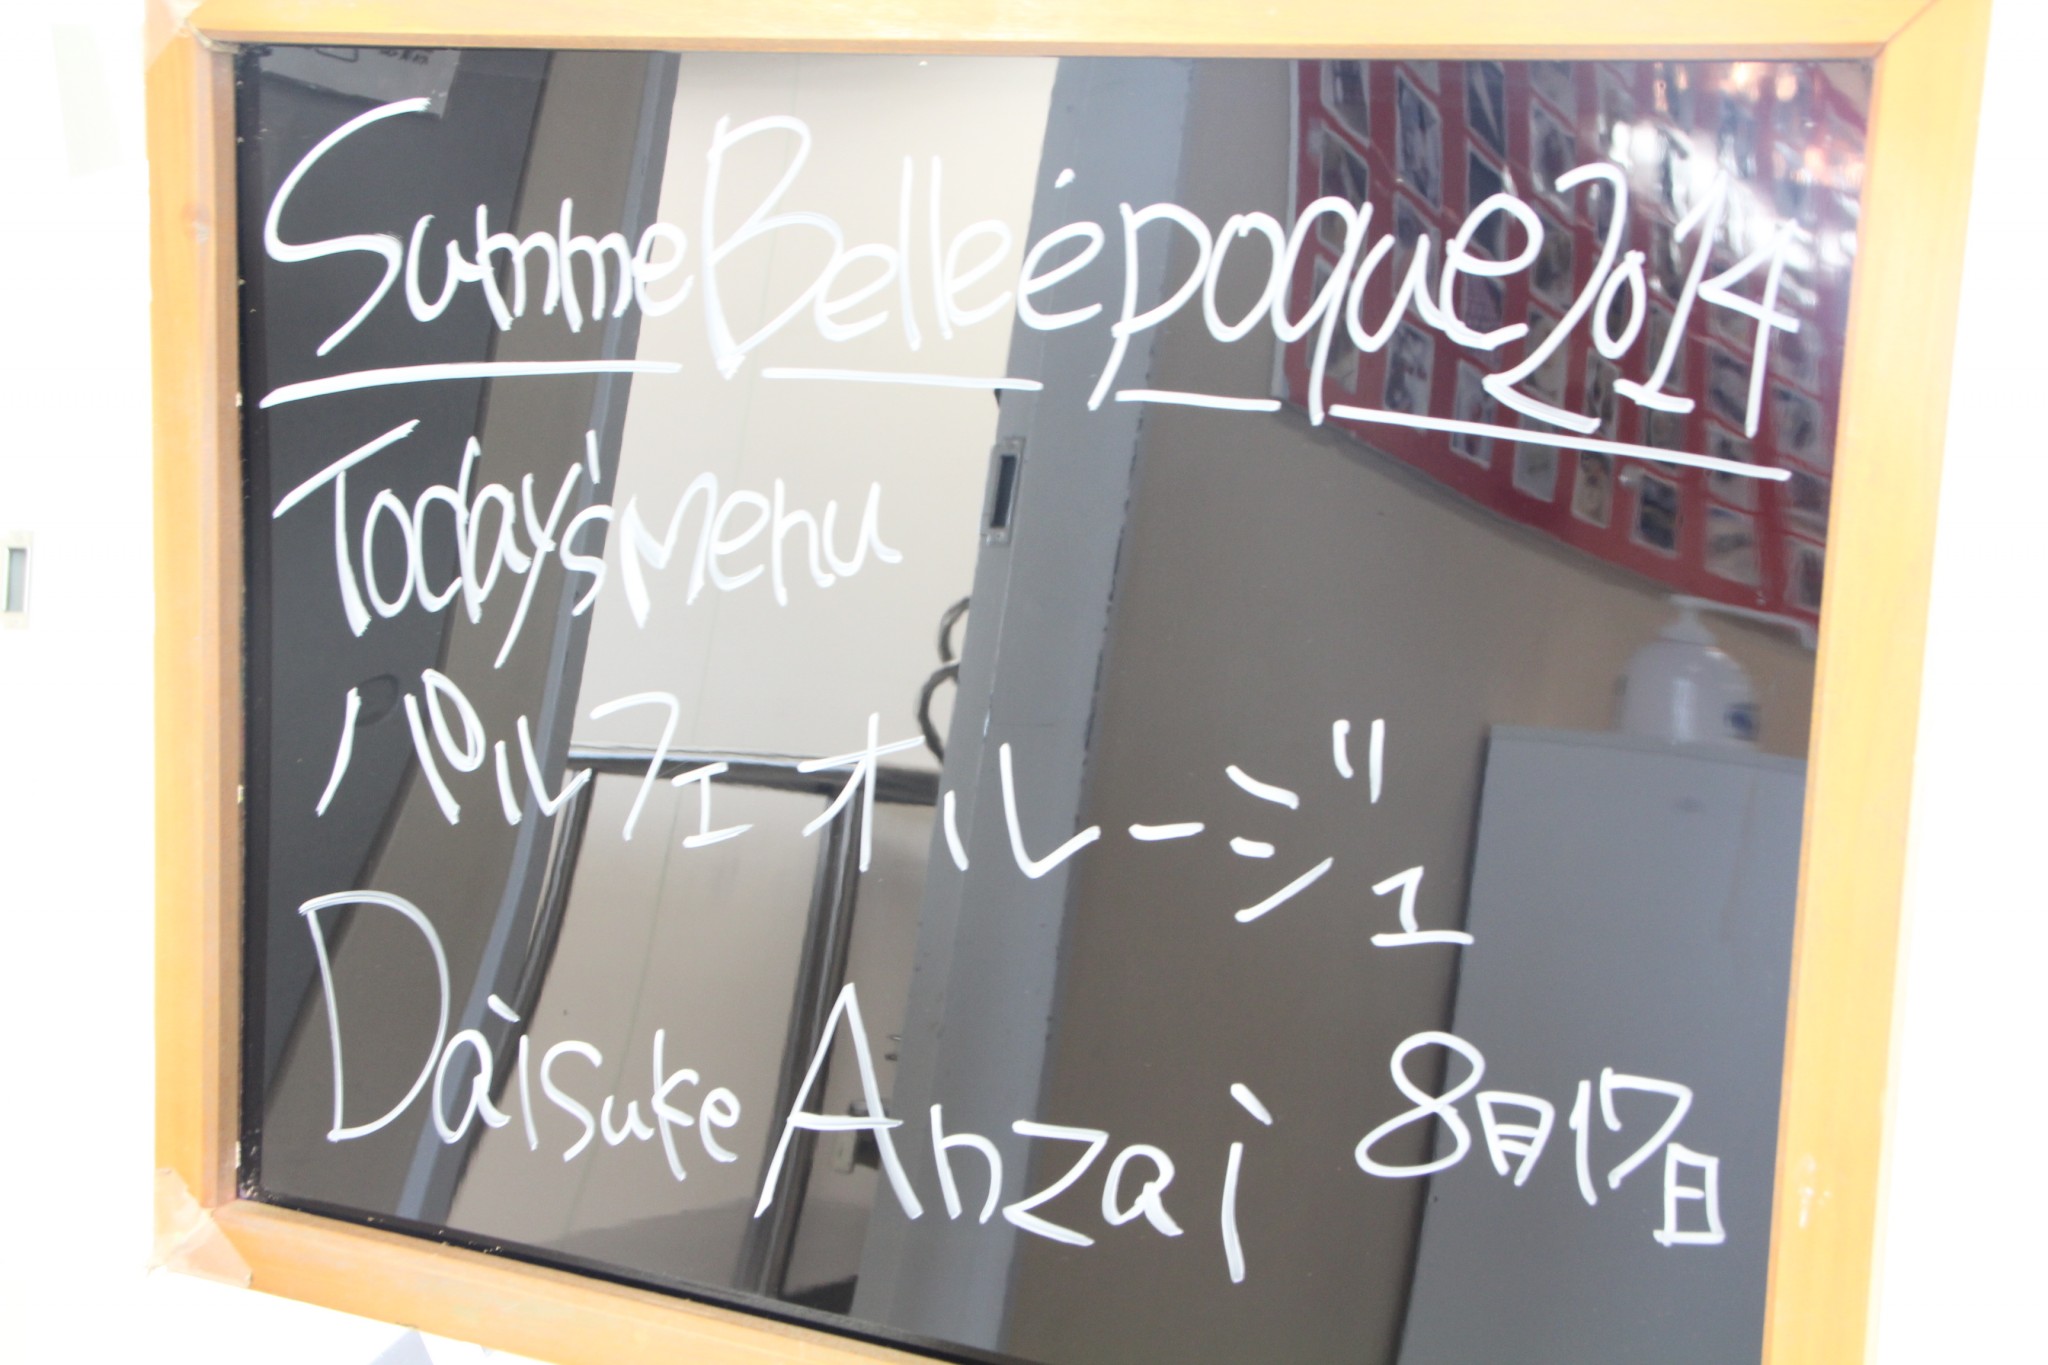 Summe Belle époque 2014
Today's menu
パルフェオルージュ
Daisuke Anzai 8月17日